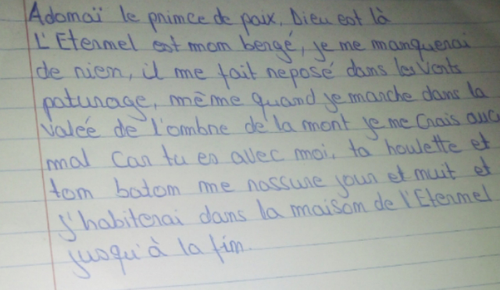 Adomaï le primce de paix, Dieu est là
L'Etermel est mom bergé, je me mamquerai
de riem, il me fait reposé dans les verts
paturage, même quand je marche dans la
valée de l'ombre de la mort je me crais aucu
mal car tu es avec moi, ta houlette et
tom batom me rassure jour et muit et
j'habiterai dans la maisom de l'Etermel
jusqu'à la fim.